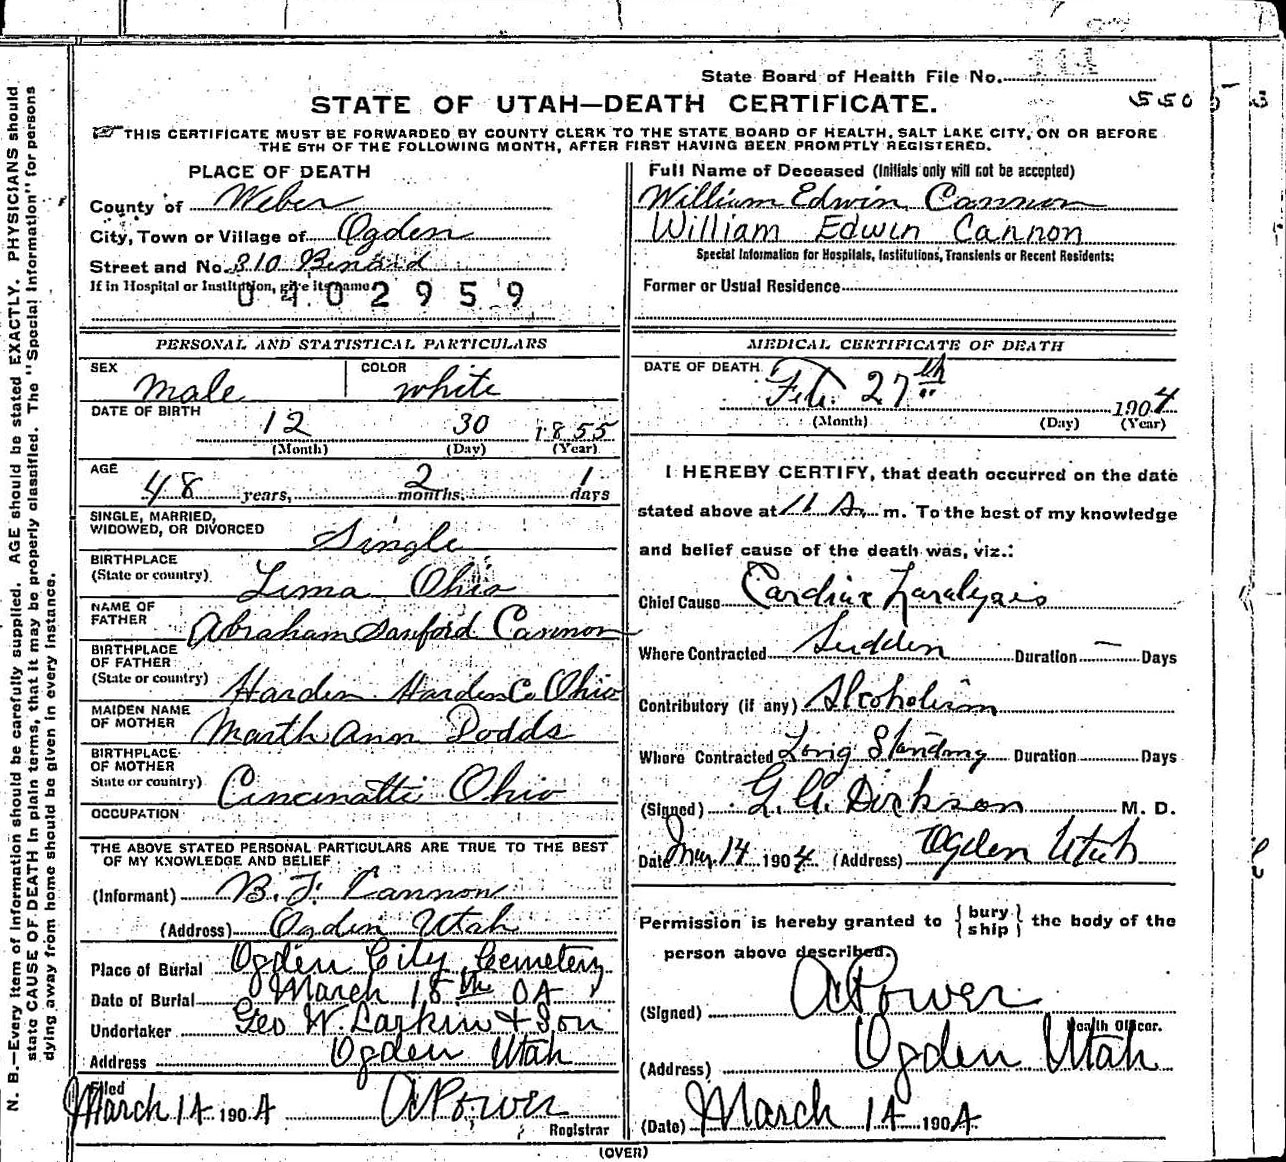 State Board of Health File No. 114
STATE OF UTAH—DEATH CERTIFICATE.
THIS CERTIFICATE MUST BE FORWARDED BY COUNTY CLERK TO THE STATE BOARD OF HEALTH, SALT LAKE CITY, ON OR BEFORE
THE 5TH OF THE FOLLOWING MONTH, AFTER FIRST HAVING BEEN PROMPTLY REGISTERED.
PLACE OF DEATH
County of Weber
City, Town or Village of Ogden
Street and No. 310 Binard
If in Hospital or Institution, give its name
0402959
Full Name of Deceased (Initials only will not be accepted)
William Edwin Cannon
William Edwin Cannon
Special Information for Hospitals, Institutions, Transients or Recent Residents:
Former or Usual Residence
PERSONAL AND STATISTICAL PARTICULARS
SEX male COLOR white
DATE OF BIRTH 12 30 1855
(Month) (Day) (Year)
AGE 48 years, 2 months, 1 days
SINGLE, MARRIED,
WIDOWED, OR DIVORCED Single
BIRTHPLACE
(State or country) Lima Ohio
NAME OF
FATHER Abraham Sanford Cannon
BIRTHPLACE
OF FATHER
(State or country) Harden Harden Co Ohio
MAIDEN NAME
OF MOTHER Marth Ann Dodds
BIRTHPLACE
OF MOTHER
State or country) Cincinatti Ohio
OCCUPATION
THE ABOVE STATED PERSONAL PARTICULARS ARE TRUE TO THE BEST
OF MY KNOWLEDGE AND BELIEF
(Informant) B. F. Cannon
(Address) Ogden Utah
Place of Burial Ogden City Cemetery
Date of Burial March 15th 04
Undertaker Geo W. Larkin & Son
Address Ogden Utah
Filed
March 14 1904 A Power
Registrar
MEDICAL CERTIFICATE OF DEATH
DATE OF DEATH Feb. 27th 1904
(Month) (Day) (Year)
I HEREBY CERTIFY, that death occurred on the date
stated above at 11 A. m. To the best of my knowledge
and belief cause of the death was, viz.:
Chief Cause Cardiac Paralysis
Where Contracted Sudden Duration — Days
Contributory (if any) Alcoholism
Where Contracted Long Standing Duration Days
(Signed) G. A. Dickson M. D.
Date Mar 14 1904 (Address) Ogden Utah
Permission is hereby granted to { bury ship } the body of the
person above described.
(Signed) A Power
Health Officer.
(Address) Ogden Utah
(Date) March 14 1904
(OVER)
N. B.—Every item of information should be carefully supplied. AGE should be stated EXACTLY. PHYSICIANS should
state CAUSE OF DEATH in plain terms, that it may be properly classified. The "Special Information" for persons
dying away from home should be given in every instance.